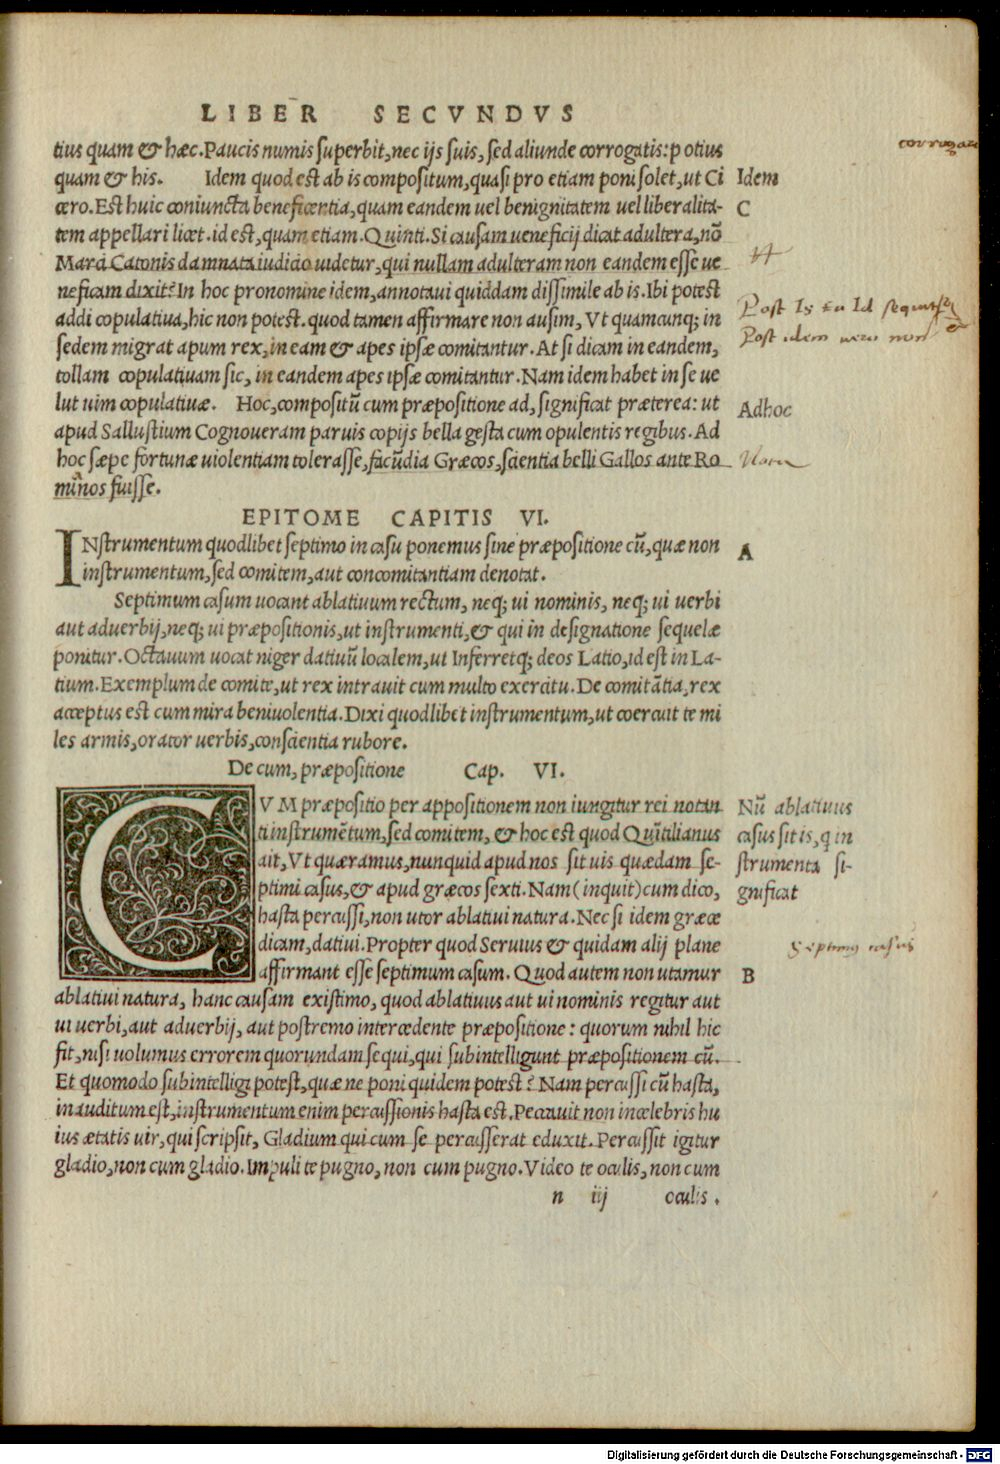 LIBER SECVNDVS
tius quam & hæc. Paucis numis superbit, nec ijs suis, sed aliunde corrogatis: p otius
quam & his. Idem quod est ab is compositum, quasi pro etiam poni solet, ut Ci
cero. Est huic coniuncta beneficentia, quam eandem uel benignitatem uel liberalita-
tem appellari licet. id est, quam etiam. Quinti. Si causam ueneficij dicat adultera, nõ
Marci Catonis damnata iudicio uidetur, qui nullam adulteram non eandem esse ue
neficam dixit? In hoc pronomine idem, annotaui quiddam dissimile ab is. Ibi potest
addi copulatiua, hic non potest. quod tamen affirmare non ausim, Vt quamcunq; in
sedem migrat apum rex, in eam & apes ipsæ comitantur. At si dicam in eandem,
tollam copulatiuam sic, in eandem apes ipsæ comitantur. Nam idem habet in se ue
lut uim copulatiuæ. Hoc, compositũ cum præpositione ad, significat præterea: ut
apud Sallustium Cognoueram paruis copijs bella gesta cum opulentis regibus. Ad
hoc sæpe fortunæ uiolentiam tolerasse, facũdia Græcos, scientia belli Gallos ante Ro
minos fuisse.
corrogare
Idem
C
Post Is Ea Id sequitur
&
Post idem uero non
Adhoc
Nota
EPITOME CAPITIS VI.
INstrumentum quodlibet septimo in casu ponemus sine præpositione cũ, quæ non
instrumentum, sed comitem, aut concomitantiam denotat.
A
Septimum casum uocant ablatiuum rectum, neq; ui nominis, neq; ui uerbi
aut aduerbij, neq; ui præpositionis, ut instrumenti, & qui in designatione sequelæ
ponitur. Octauum uocat niger datiuũ localem, ut Inferretq; deos Latio, id est in La-
tium. Exemplum de comite, ut rex intrauit cum multo exercitu. De comitãtia, rex
acceptus est cum mira beniuolentia. Dixi quodlibet instrumentum, ut coercuit te mi
les armis, orator uerbis, conscientia rubore.
De cum, præpositione Cap. VI.
CVM præpositio per appositionem non iungitur rei notan
ti instrumẽtum, sed comitem, & hoc est quod Quĩtilianus
ait, Vt quæramus, nunquid apud nos sit uis quædam se-
ptimi casus, & apud græcos sexti. Nam (inquit) cum dico,
hasta percussi, non utor ablatiui natura. Nec si idem græce
dicam, datiui. Propter quod Seruius & quidam alij plane
affirmant esse septimum casum. Quod autem non utamur
ablatiui natura, hanc causam existimo, quod ablatiuus aut ui nominis regitur aut
ui uerbi, aut aduerbij, aut postremo intercedente præpositione: quorum nihil hic
fit, nisi uolumus errorem quorundam sequi, qui subintelligunt præpositionem cũ.
Et quomodo subintelligi potest, quæ ne poni quidem potest? Nam percussi cũ hasta,
inauditum est, instrumentum enim percussionis hasta est. Peccauit non incelebris hu
ius ætatis uir, qui scripsit, Gladium qui cum se percusserat eduxit. Percussit igitur
gladio, non cum gladio. Impuli te pugno, non cum pugno. Video te oculis, non cum
Nũ ablatiuus
casus sit is, q in
strumenta si-
gnificat
Septimus casus
B
n iij oculis.
Digitalisierung gefördert durch die Deutsche Forschungsgemeinschaft - DFG